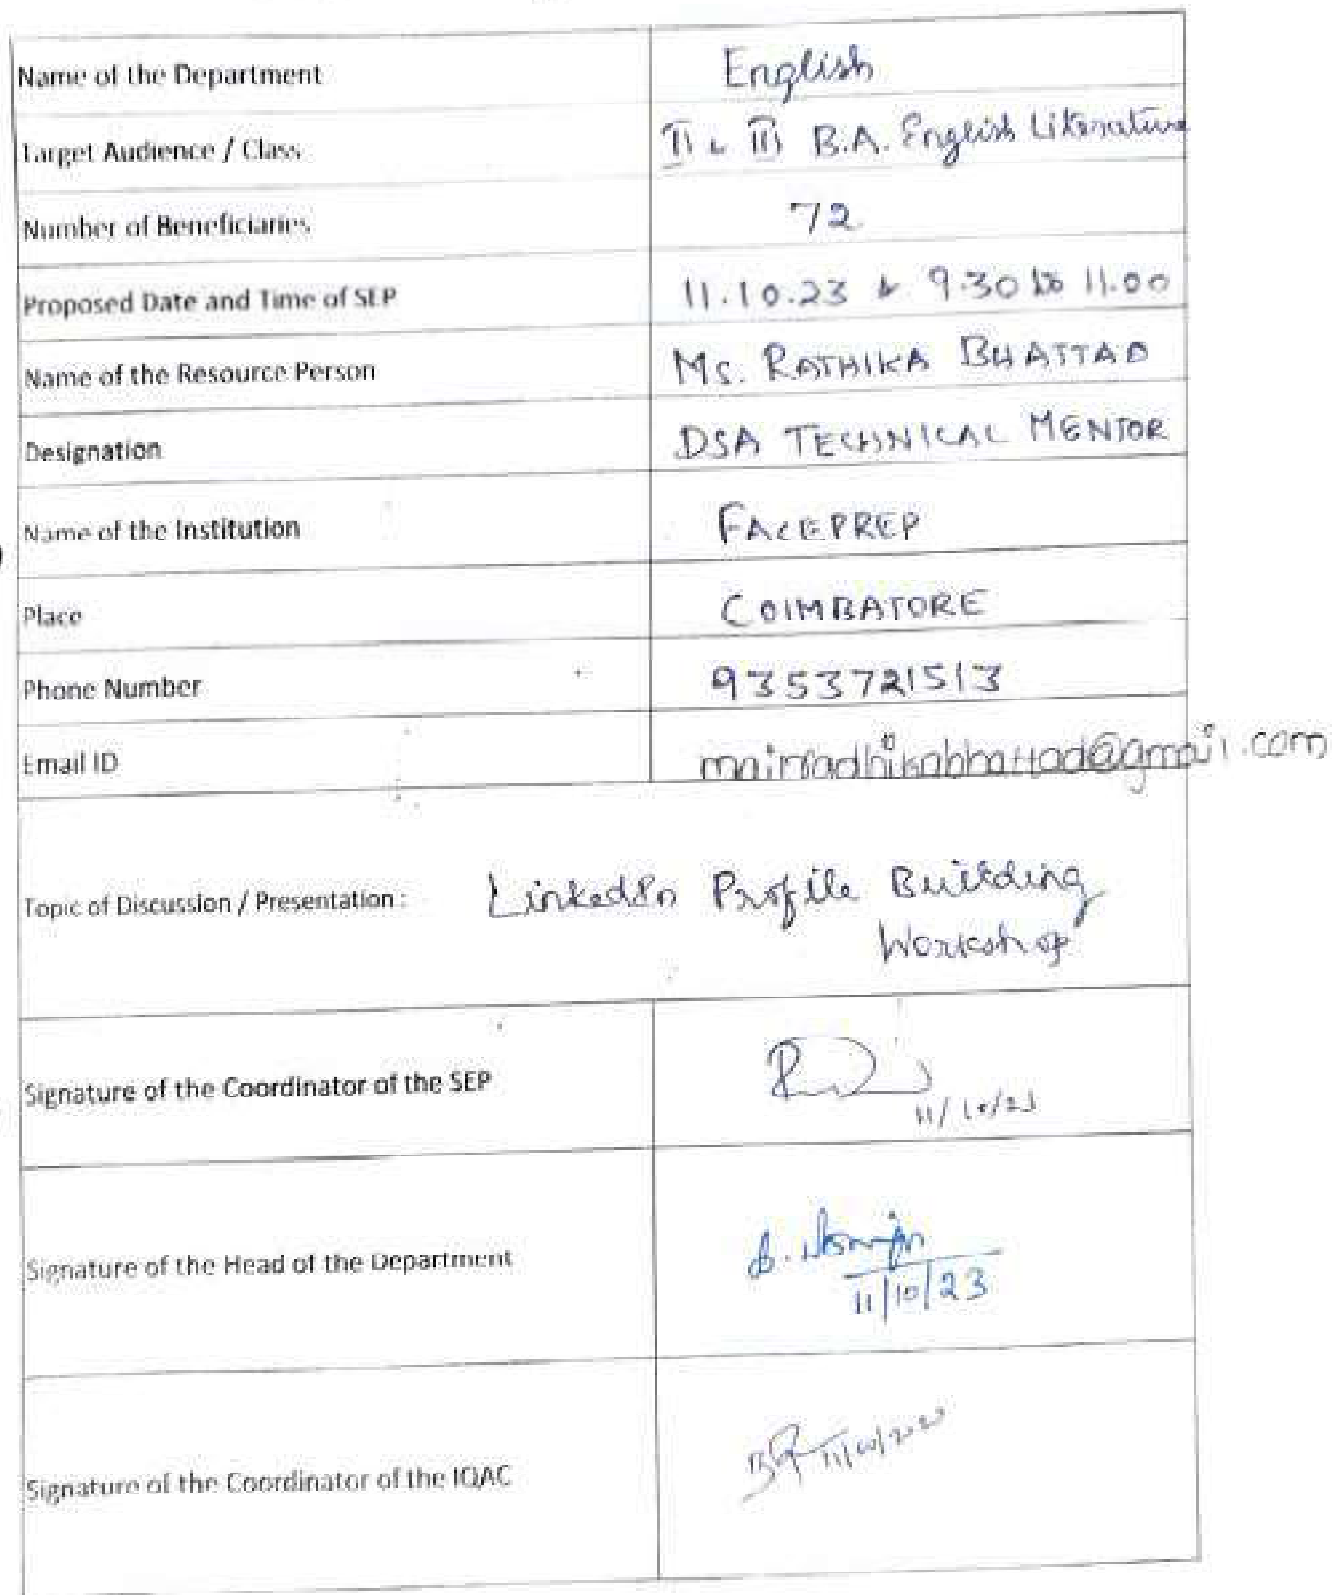 Name of the Department English
Target Audience / Class II & III B.A. English Literature
Number of Beneficiaries 72
Proposed Date and Time of SEP 11.10.23 & 9.30 to 11.00
Name of the Resource Person Ms. RATHIKA BHATTAD
Designation DSA TECHNICAL MENTOR
Name of the Institution FACEPREP
Place COIMBATORE
Phone Number 9353721513
Email ID
Topic of Discussion / Presentation : LinkedIn Profile Building
Workshop
Signature of the Coordinator of the SEP
11/10/23
Signature of the Head of the Department
11/10/23
Signature of the Coordinator of the IQAC
11/10/2023